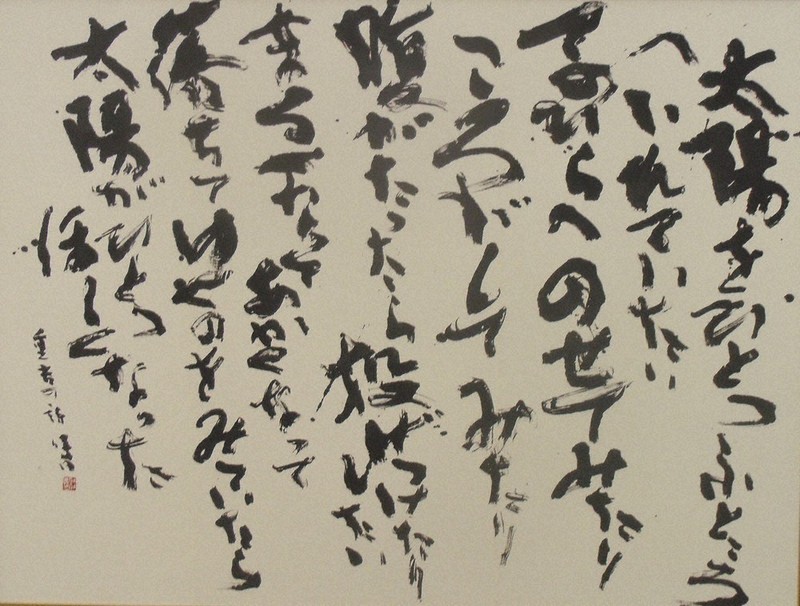 太陽をひとつふところ
へいれていたい
てのひらへのせてみたり
ころがしてみたり
腹がたったら投げつけたり
したい
まるくなってあかくなって
落ちてゆくのをみていたら
太陽がひとつ
ほしくなった
重吉の詩